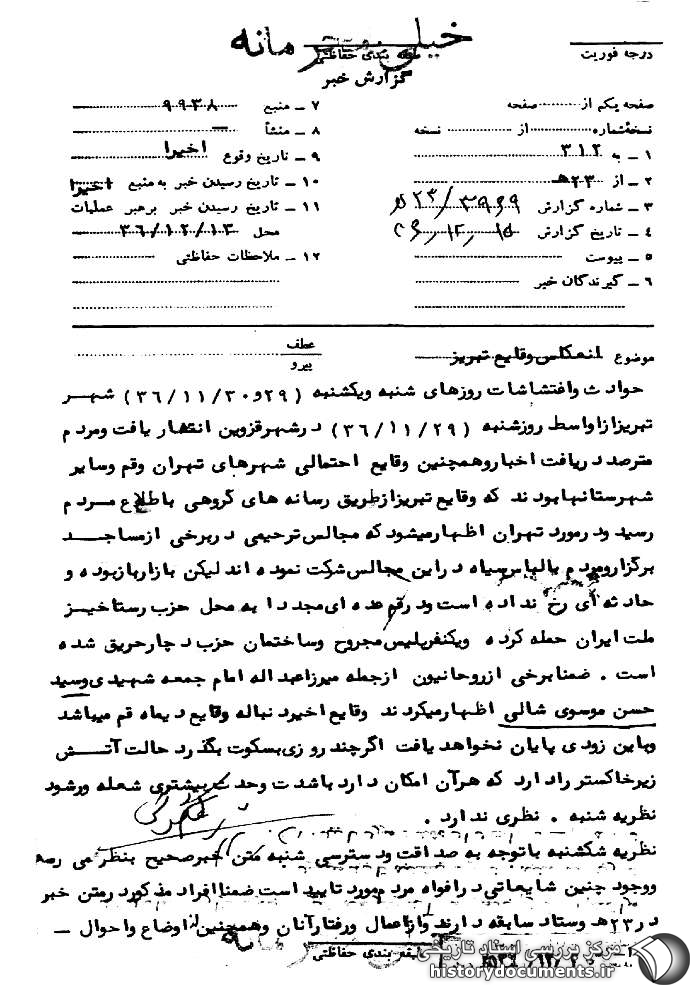 خیلی محرمانه
طبقه بندی حفاظتی
درجه فوریت
گزارش خبر
صفحه یکم از صفحه
۷ ــ منبع ۹۹۳۸
نسخهٔشماره از نسخه
۸ ــ منشأ ــ
۱ ــ به ۳۱۲
۹ ــ تاریخ وقوع اخیرا
۲ ــ از ۲۳هـ
۱۰ ــ تاریخ رسیدن خبر به منبع اخیرا
۳ ــ شماره گزارش
۱۱ ــ تاریخ رسیدن خبر برهبر عملیات
۴ ــ تاریخ گزارش
محل ۳۶/۱۲/۱۳
۵ ــ پیوست
۱۲ ــ ملاحظات حفاظتی
۶ ــ گیرندگان خبر
موضوع انعکاس وقایع تبریز
عطف
پیرو
حوادث واغتشاشات روزهای شنبه ویکشنبه (۲۹و۳۶/۱۱/۳۰) شهر
تبریزازاواسط روزشنبه (۳۶/۱۱/۲۹) درشهرقزوین انتشار یافت ومردم
مترصد دریافت اخباروهمچنین وقایع احتمالی شهرهای تهران وقم وسایر
شهرستانهابودند که وقایع تبریزازطریق رسانه های گروهی باطلاع مردم
رسید ودرمورد تهران اظهارمیشودکه مجالس ترحیمی دربرخی ازمساجد
برگزارومردم بالباس سیاه دراین مجالس شرکت نموده اند لیکن بازاربازبوده و
حادثه ای رخ نداده است ودرقم عده ای مجددا به محل حزب رستاخیز
ملت ایران حمله کرده ویکنفرپلیس مجروح وساختمان حزب دچارحریق شده
است . ضمنابرخی ازروحانیون ازجمله میرزاعبداله امام جمعه شهیدی وسید
حسن موسوی شالی اظهارمیکردند وقایع اخیردنباله وقایع دیماه قم میباشد
وباین زودی پایان نخواهدیافت اگرچندروزی بسکوت بگذرد حالت آتش
زیرخاکستر رادارد که هرآن امکان دارد باشدت وحدت بیشتری شعله ورشود
نظریه شنبه . نظری ندارد .
نظریه یکشنبه باتوجه به صداقت ودسترسی شنبه متن خبرصحیح بنظر می رسد
ووجود چنین شایعاتی درافواه مردم مورد تایید است ضمناافراد مذکوردرمتن خبر
در۲۳هـ وستاد سابقه دارند وازاعمال ورفتارآنان وهمچنین اوضاع واحوال ــ
طبقه بندی حفاظتی
مرکز بررسی اسناد تاریخی
historydocuments.ir